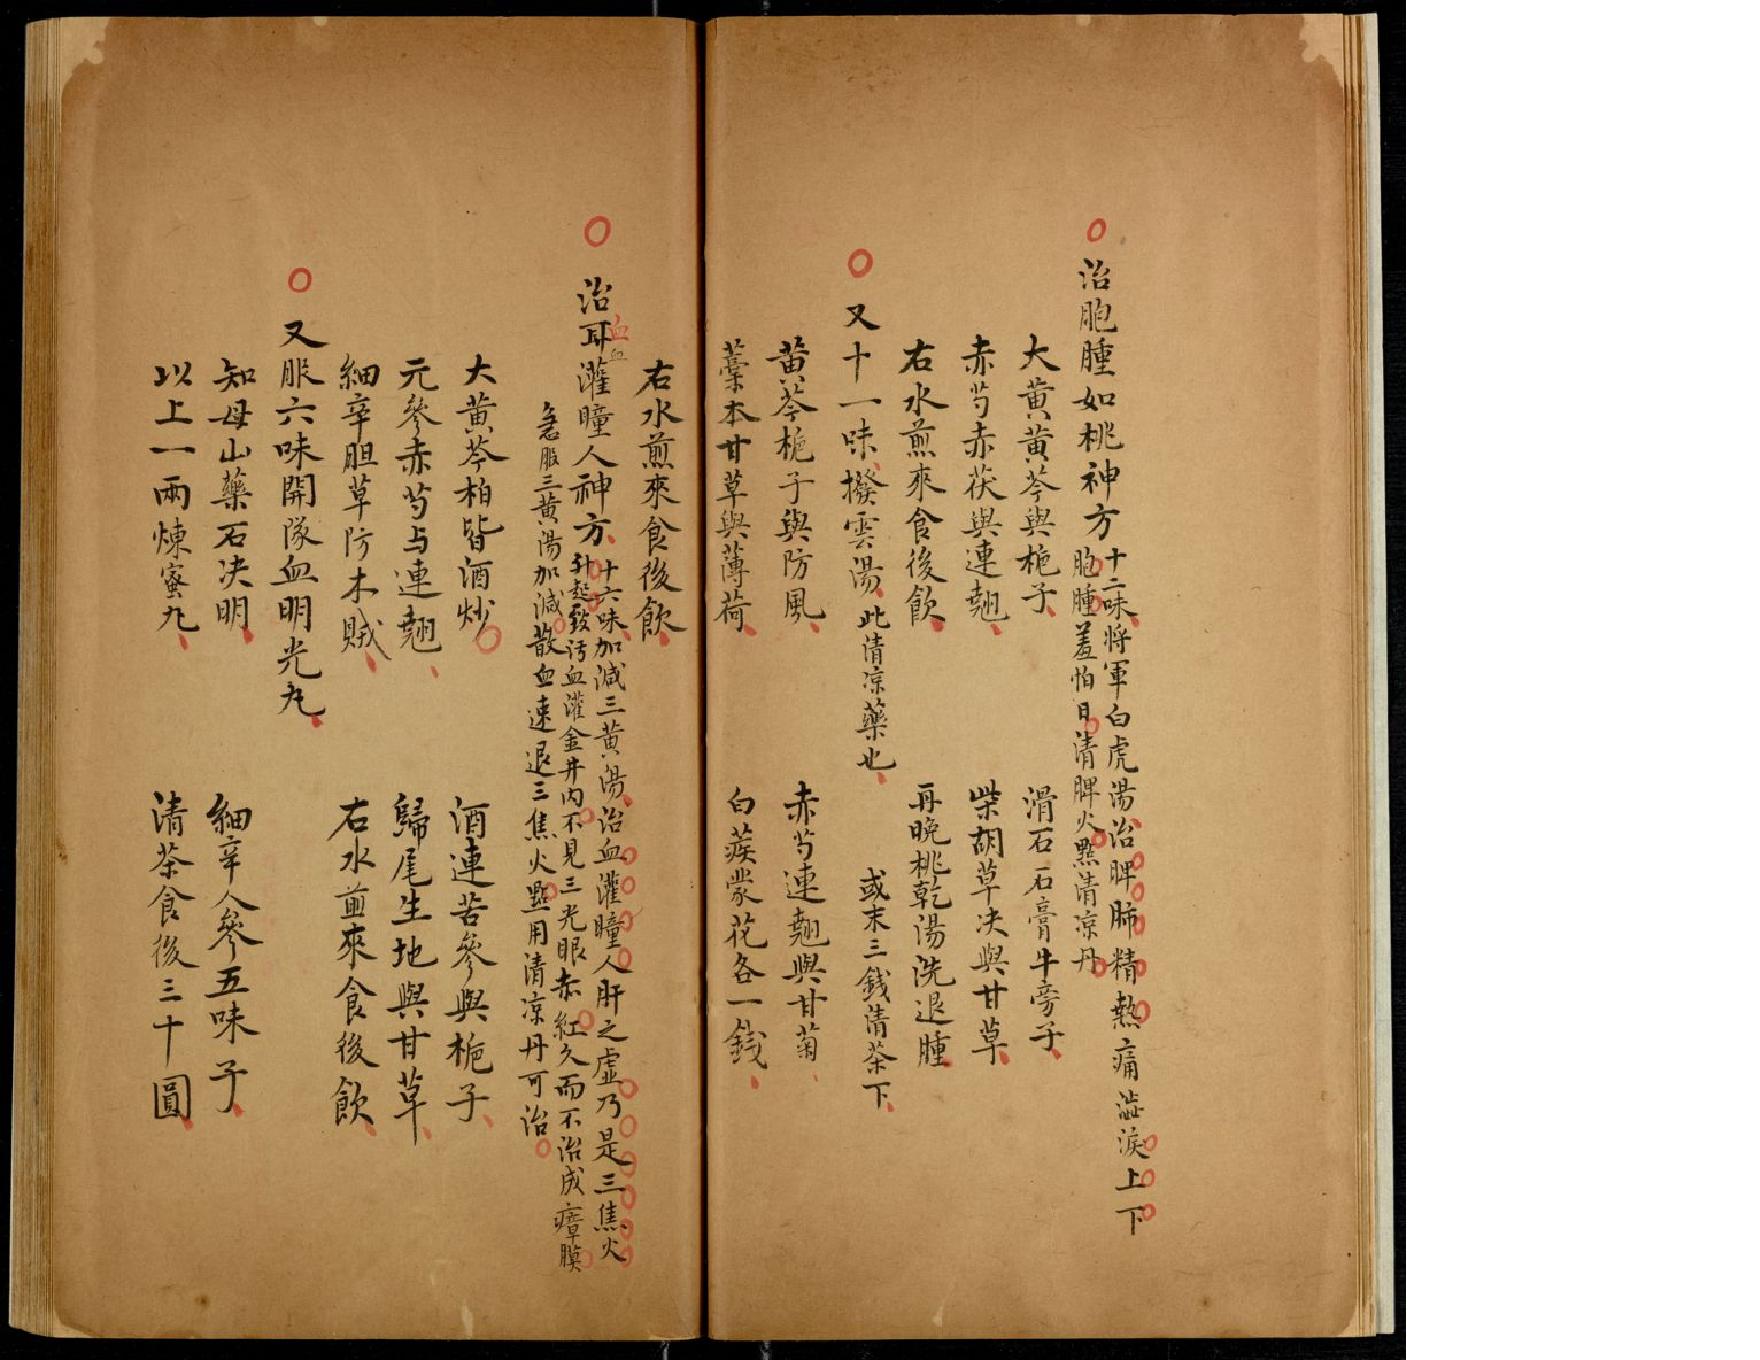 治胞腫如桃神方
十二味將軍白虎湯治脾肺精熱痛澁淚上下
胞腫羞怕日清脾火點清凉丹
大黄黄芩與梔子 滑石石膏牛旁子
赤芍赤茯與連翹 柴胡草决與甘草
右水煎來食後飲 再晚桃乾湯洗退腫
又十一味撥雲湯 此清凉藥也 或末三錢清茶下
黄芩梔子與防風 赤芍連翹與甘菊
藁本甘草與薄荷 白蒺蒙花各一錢
右水煎來食後飲
治耳灌瞳人神方
血
十六味加減三黄湯治血灌瞳人肝之虛乃是三焦火
升起致污血灌金井内不見三光眼赤紅久而不治成瘴膜
急服三黄湯加減散血速退三焦火點用清凉丹可治
大黄芩柏皆酒炒 酒連苦參與梔子
元參赤芍与連翹 歸尾生地與甘草
細辛胆草防木賊 右水煎來食後飲
又服六味開隊血明光丸
知母山藥石决明 細辛人參五味子
以上一兩煉蜜丸 清茶食後三十圓